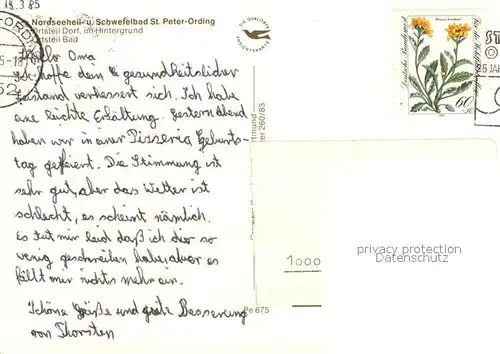 19.3.85
Nordseeheil- u. Schwefelbad St. Peter-Ording
Ortsteil Dorf, im Hintergrund
Ortsteil Bad
DIE QUALITÄTS
ANSICHTSKARTE
Deutsche Bundespost
60
25 JAH
Hallo Oma
Ich hoffe dein gesundheitslicher
zustand verbessert sich. Ich habe
eine leichte Erkältung. Gestern Abend
haben wir in einer Pizzeria Geburts-
tag gefeiert. Die Stimmung ist
sehr gut, aber das Wetter ist
schlecht, es scheint nämlich.
Es tut mir leid daß ich dir so
wenig geschrieben habe, aber es
fällt mir nichts mehr ein.
Schöne Grüße und gute Besserung
von Thorsten
260/83
Pe 675
1000
privacy protection
Datenschutz